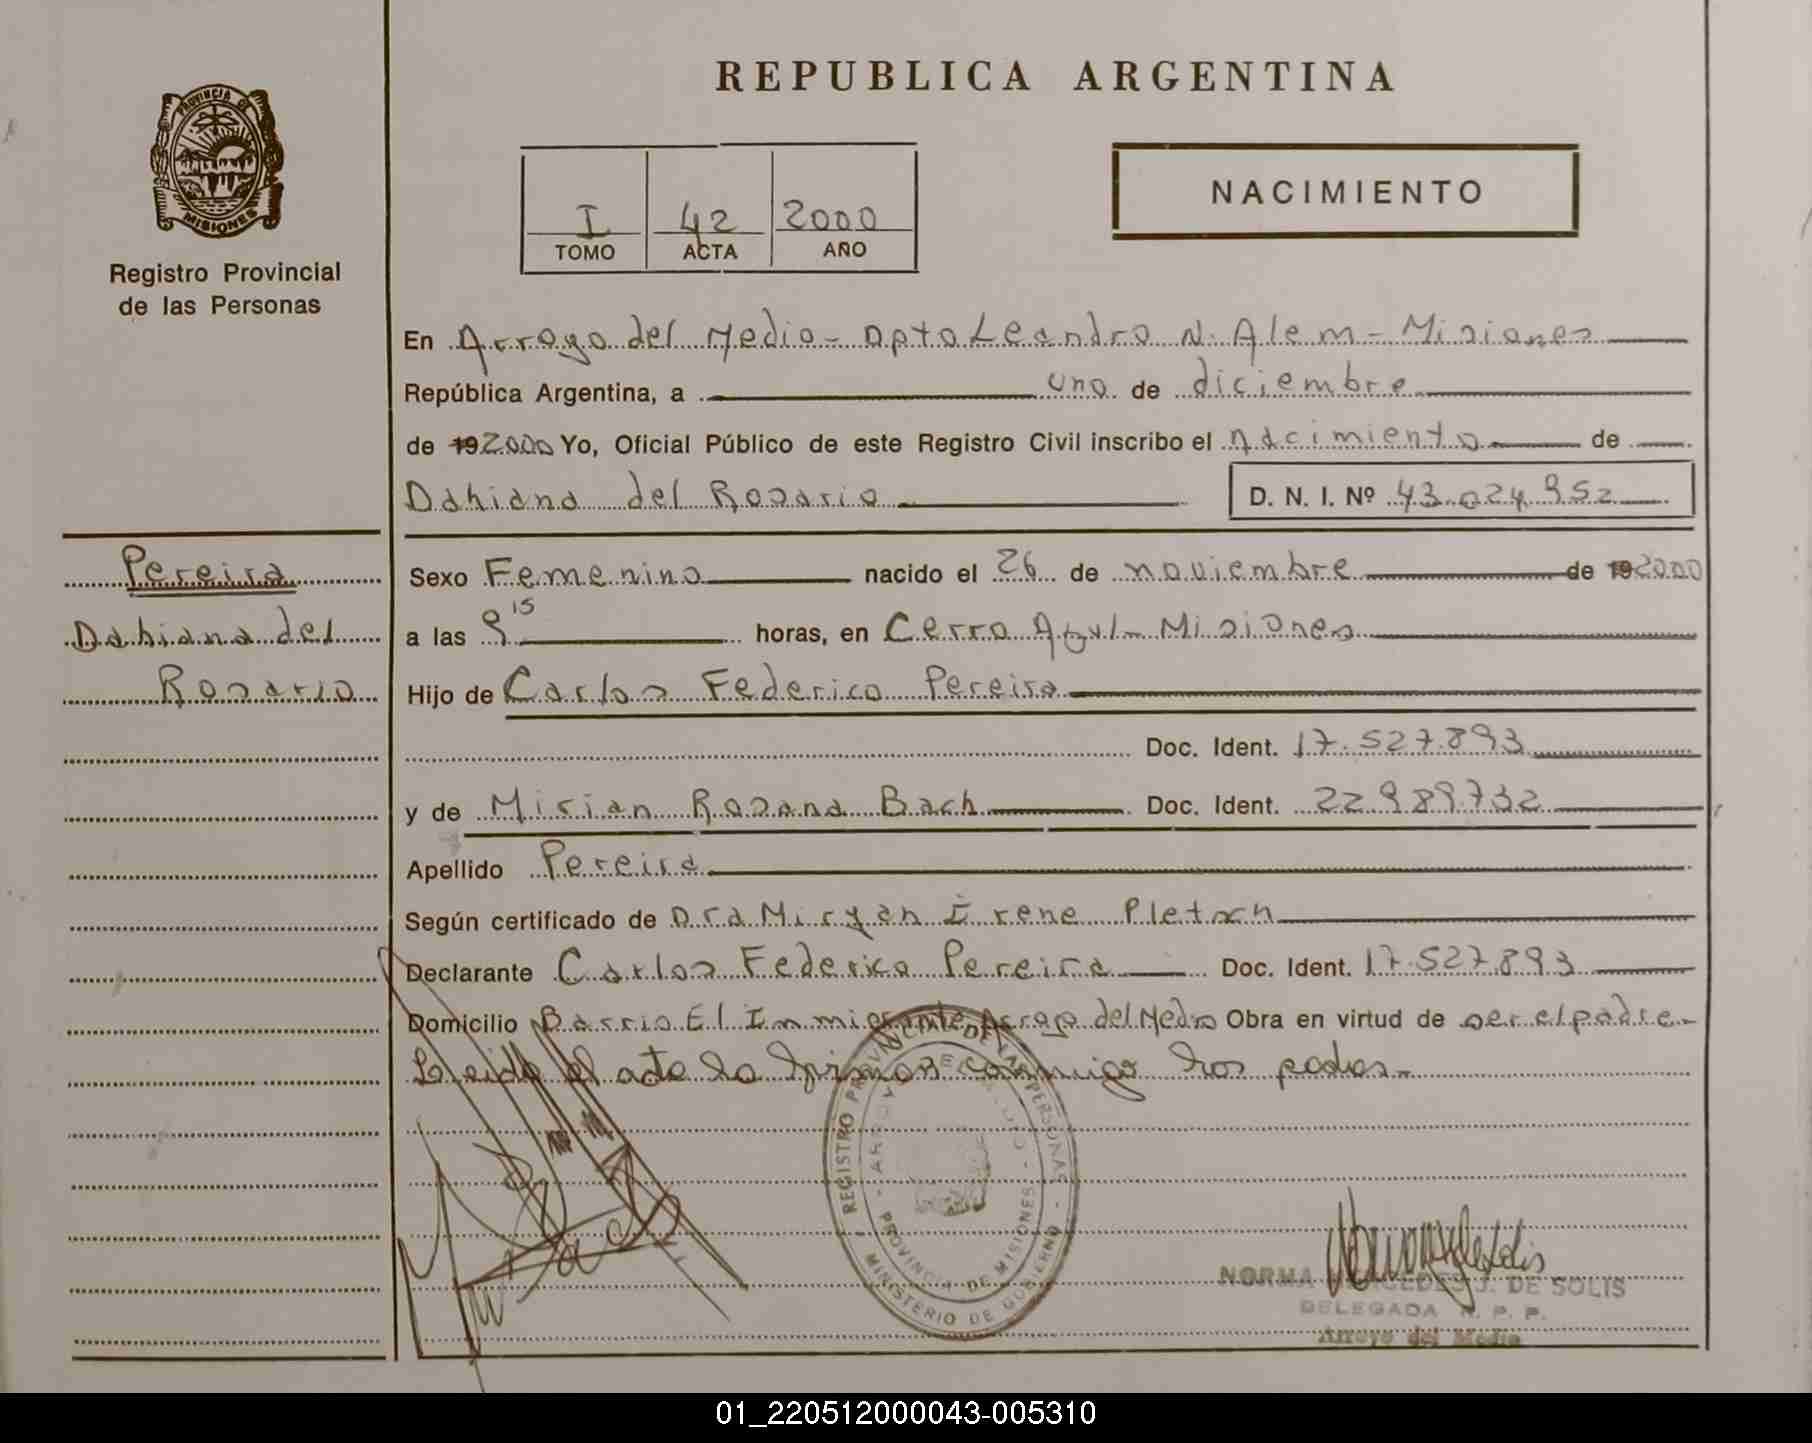 PROVINCIA DE
MISIONES
Registro Provincial
de las Personas
Pereira
Dahiana del
Rosario
REPUBLICA ARGENTINA
I 42 2000
TOMO ACTA AÑO
NACIMIENTO
En Arroyo del Medio - Dpto Leandro N. Alem - Misiones
República Argentina, a uno de diciembre
de 19 2000 Yo, Oficial Público de este Registro Civil inscribo el nacimiento de
Dahiana del Rosario D. N. I. Nº 43.024.952
Sexo Femenino nacido el 26 de noviembre de 19 2000
a las 9 15 horas, en Cerro Azul Misiones
Hijo de Carlos Federico Pereira
Doc. Ident. 17.527.893
y de Mirian Rosana Bach Doc. Ident. 22.989.732
Apellido Pereira
Según certificado de Dra Miryan Irene Pletsch
Declarante Carlos Federico Pereira Doc. Ident. 17.527.893
Domicilio Barrio El Inmigrante Arroyo del Medio Obra en virtud de ser el padre-
Leida el acta la firman conmigo los padres-
REGISTRO PROVINCIAL DE LAS PERSONAS
PROVINCIA DE MISIONES
MINISTERIO DE GOBIERNO
NORMA MERCEDES J. DE SOLIS
DELEGADA R. P. P.
Arroyo del Medio
01_220512000043-005310